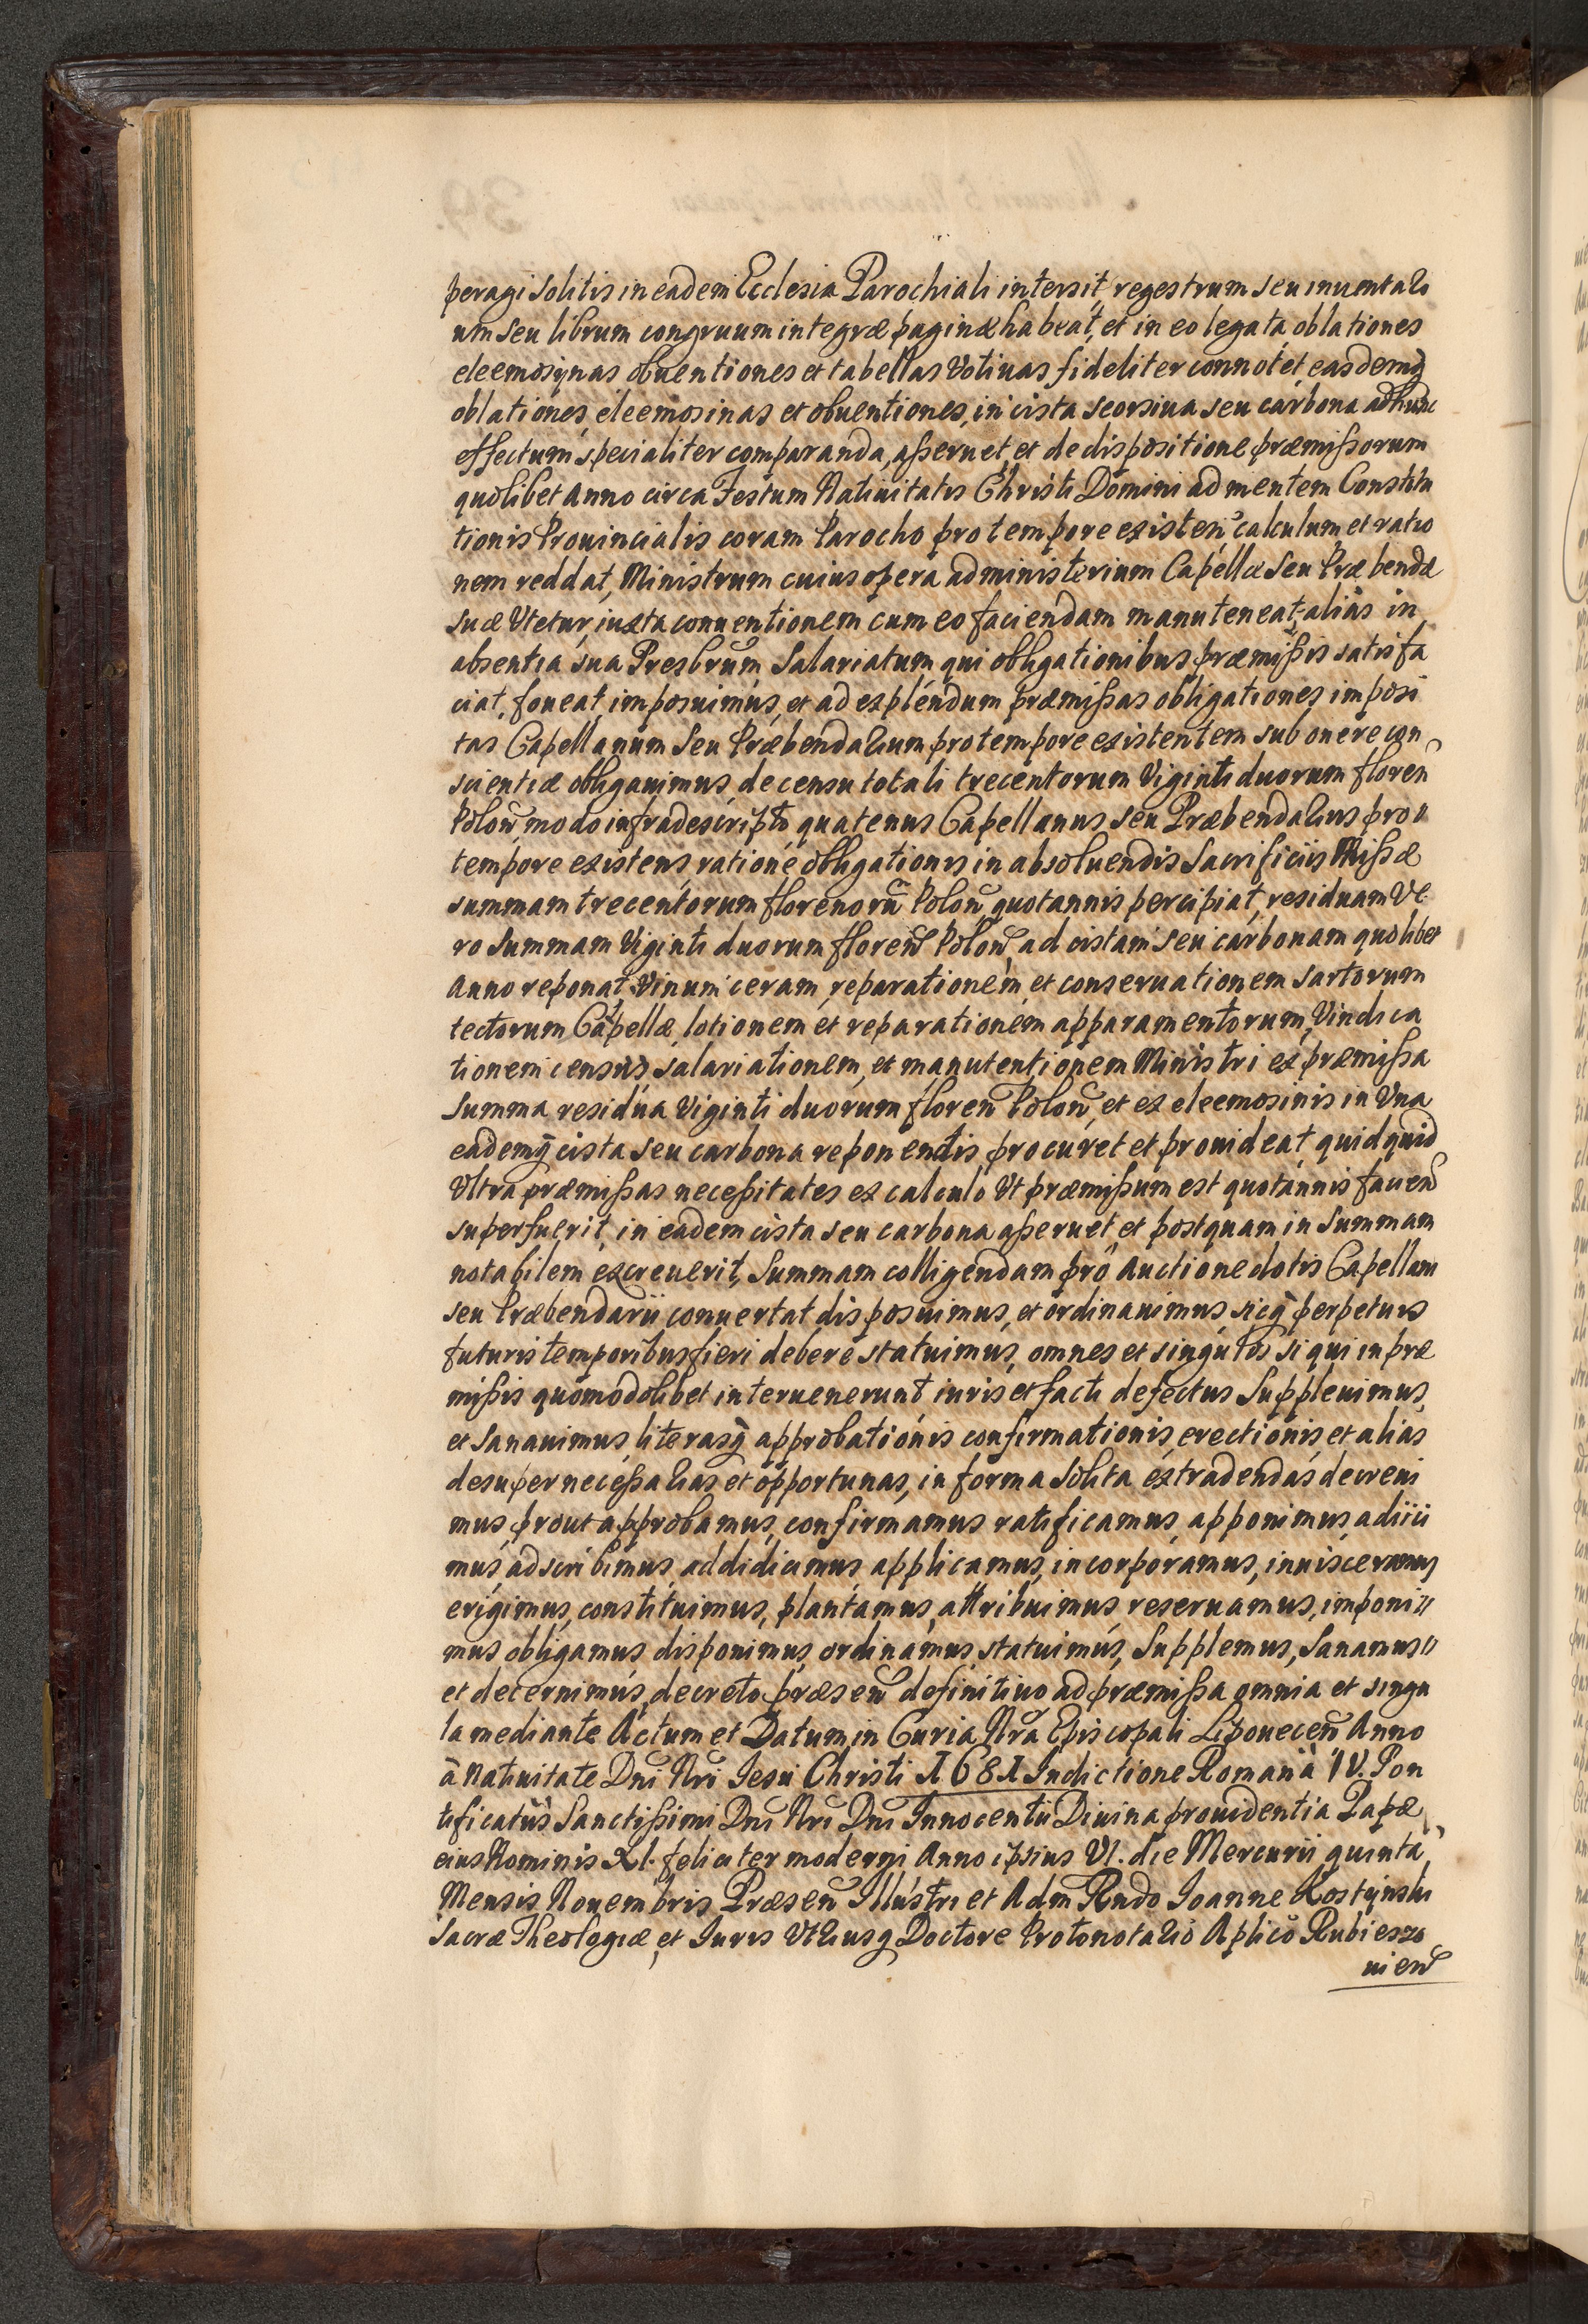 peragi solitis in eadem Ecclesia Parochiali intersit, regestrum seu inuentari
um seu librum congruum integræ paginæ habeat, et in eo legata oblationes
eleemosynas obuentiones et tabellas Votiuas fideliter connotet easdemq̃
oblationes, eleemosinas et obuentiones, in cista seorsiua seu carbona ad hunc
effectum specialiter comparanda, asseruet, et de dispositione præmissorum
quolibet Anno circa Festum Natiuitatis Christi Domini ad mentem Constitu
tionis Prouincialis coram Parocho pro tempore existeñ calculum et ratio
nem reddat, Ministrum cuius opera ad ministerium Capellæ seu Præbendæ
suæ Vtetur, iuxta conuentionem cum eo faciendam manuteneat, alias in
absentia sua Presbrum Salariatum qui obligationibus præmissis satisfa
ciat, foueat imposuimus, et ad explendum præmissas obligationes imposi
tas Capellanum Seu Præbendarium pro tempore existentem sub onere con
scientiæ obligauimus, de censu totali trecentorum Viginti duorum floreñ
Poloñ modo infradescripto quatenus Capellanus, seu Præbendarius pro
tempore existens, ratione obligationis in absoluendis Sacrificiis Missæ
summam trecentorum florenorũ Poloñ quotannis percipiat, residuam Ve
ro Summam Viginti duorum floreñ Poloñ, ad cistam seu carbonam quolibet
Anno reponat, Vinum ceram, reparationem, et conseruationem sartorum
tectorum Capellæ, lotionem et reparationem apparamentorum, Vindica
tionem census, salariationem, et manutentionem Ministri ex præmissa
Summa residua Viginti duorum floreñ Poloñ, et ex eleemosinis in Vna
eademq̃ cista seu carbona reponendis procuret et prouideat, quidquid
Vltra præmissas necessitates ex calculo Vt præmissum est quotannis facieñ
superfuerit, in eadem cista seu carbona asseruet et postquam in Summam
notabilem excreuerit, Summam colligendam pro Auctione dotis Capellani
seu Præbendarii conuertat disposuimus, et ordinauimus, sicq̃ perpetuis
futuris temporibus fieri debere statuimus, omnes et singulos si qui in præ
missis quomodolibet interuenerunt iuris et facti defectus Suppleuimus,
et Sanauimus, literasq̃ approbationis confirmationis, erectionis, et alias
desuper necessarias et opportunas, in forma solita extradendas decreui
mus, prout approbamus, confirmamus ratificamus, apponimus, adiici
mus, adscribimus, addidicimus, applicamus, incorporamus, inuisceramus,
erigimus, constituimus, plantamus, attribuimus, reseruamus, imponi
mus obligamus disponimus, ordinamus, statuimus, Supplemus, Sanamus
et decernimus, decreto præseñ definitiuo ad præmissa omnia et singu
la mediante Actum et Datum in Curia Nrã Episcopali Liponeceñ Anno
à Natiuitate Dni Nri Iesu Christi 1681 Indictione Romana IV. Pon
tificatus Sanctissimi Dni Nri Dni Innocentii Diuina prouidentia Papæ
eius Nominis XI. feliciter moderni Anno ipsius VI. die Mercurii quinta
Mensis Nouembris Præseñ Illustri et Adm Rndo Ioanne Kostynski
Sacræ Theologiæ, et Iuris Vtriusq̃ Doctore Protonotario Aplico Rubieszo
uieñ